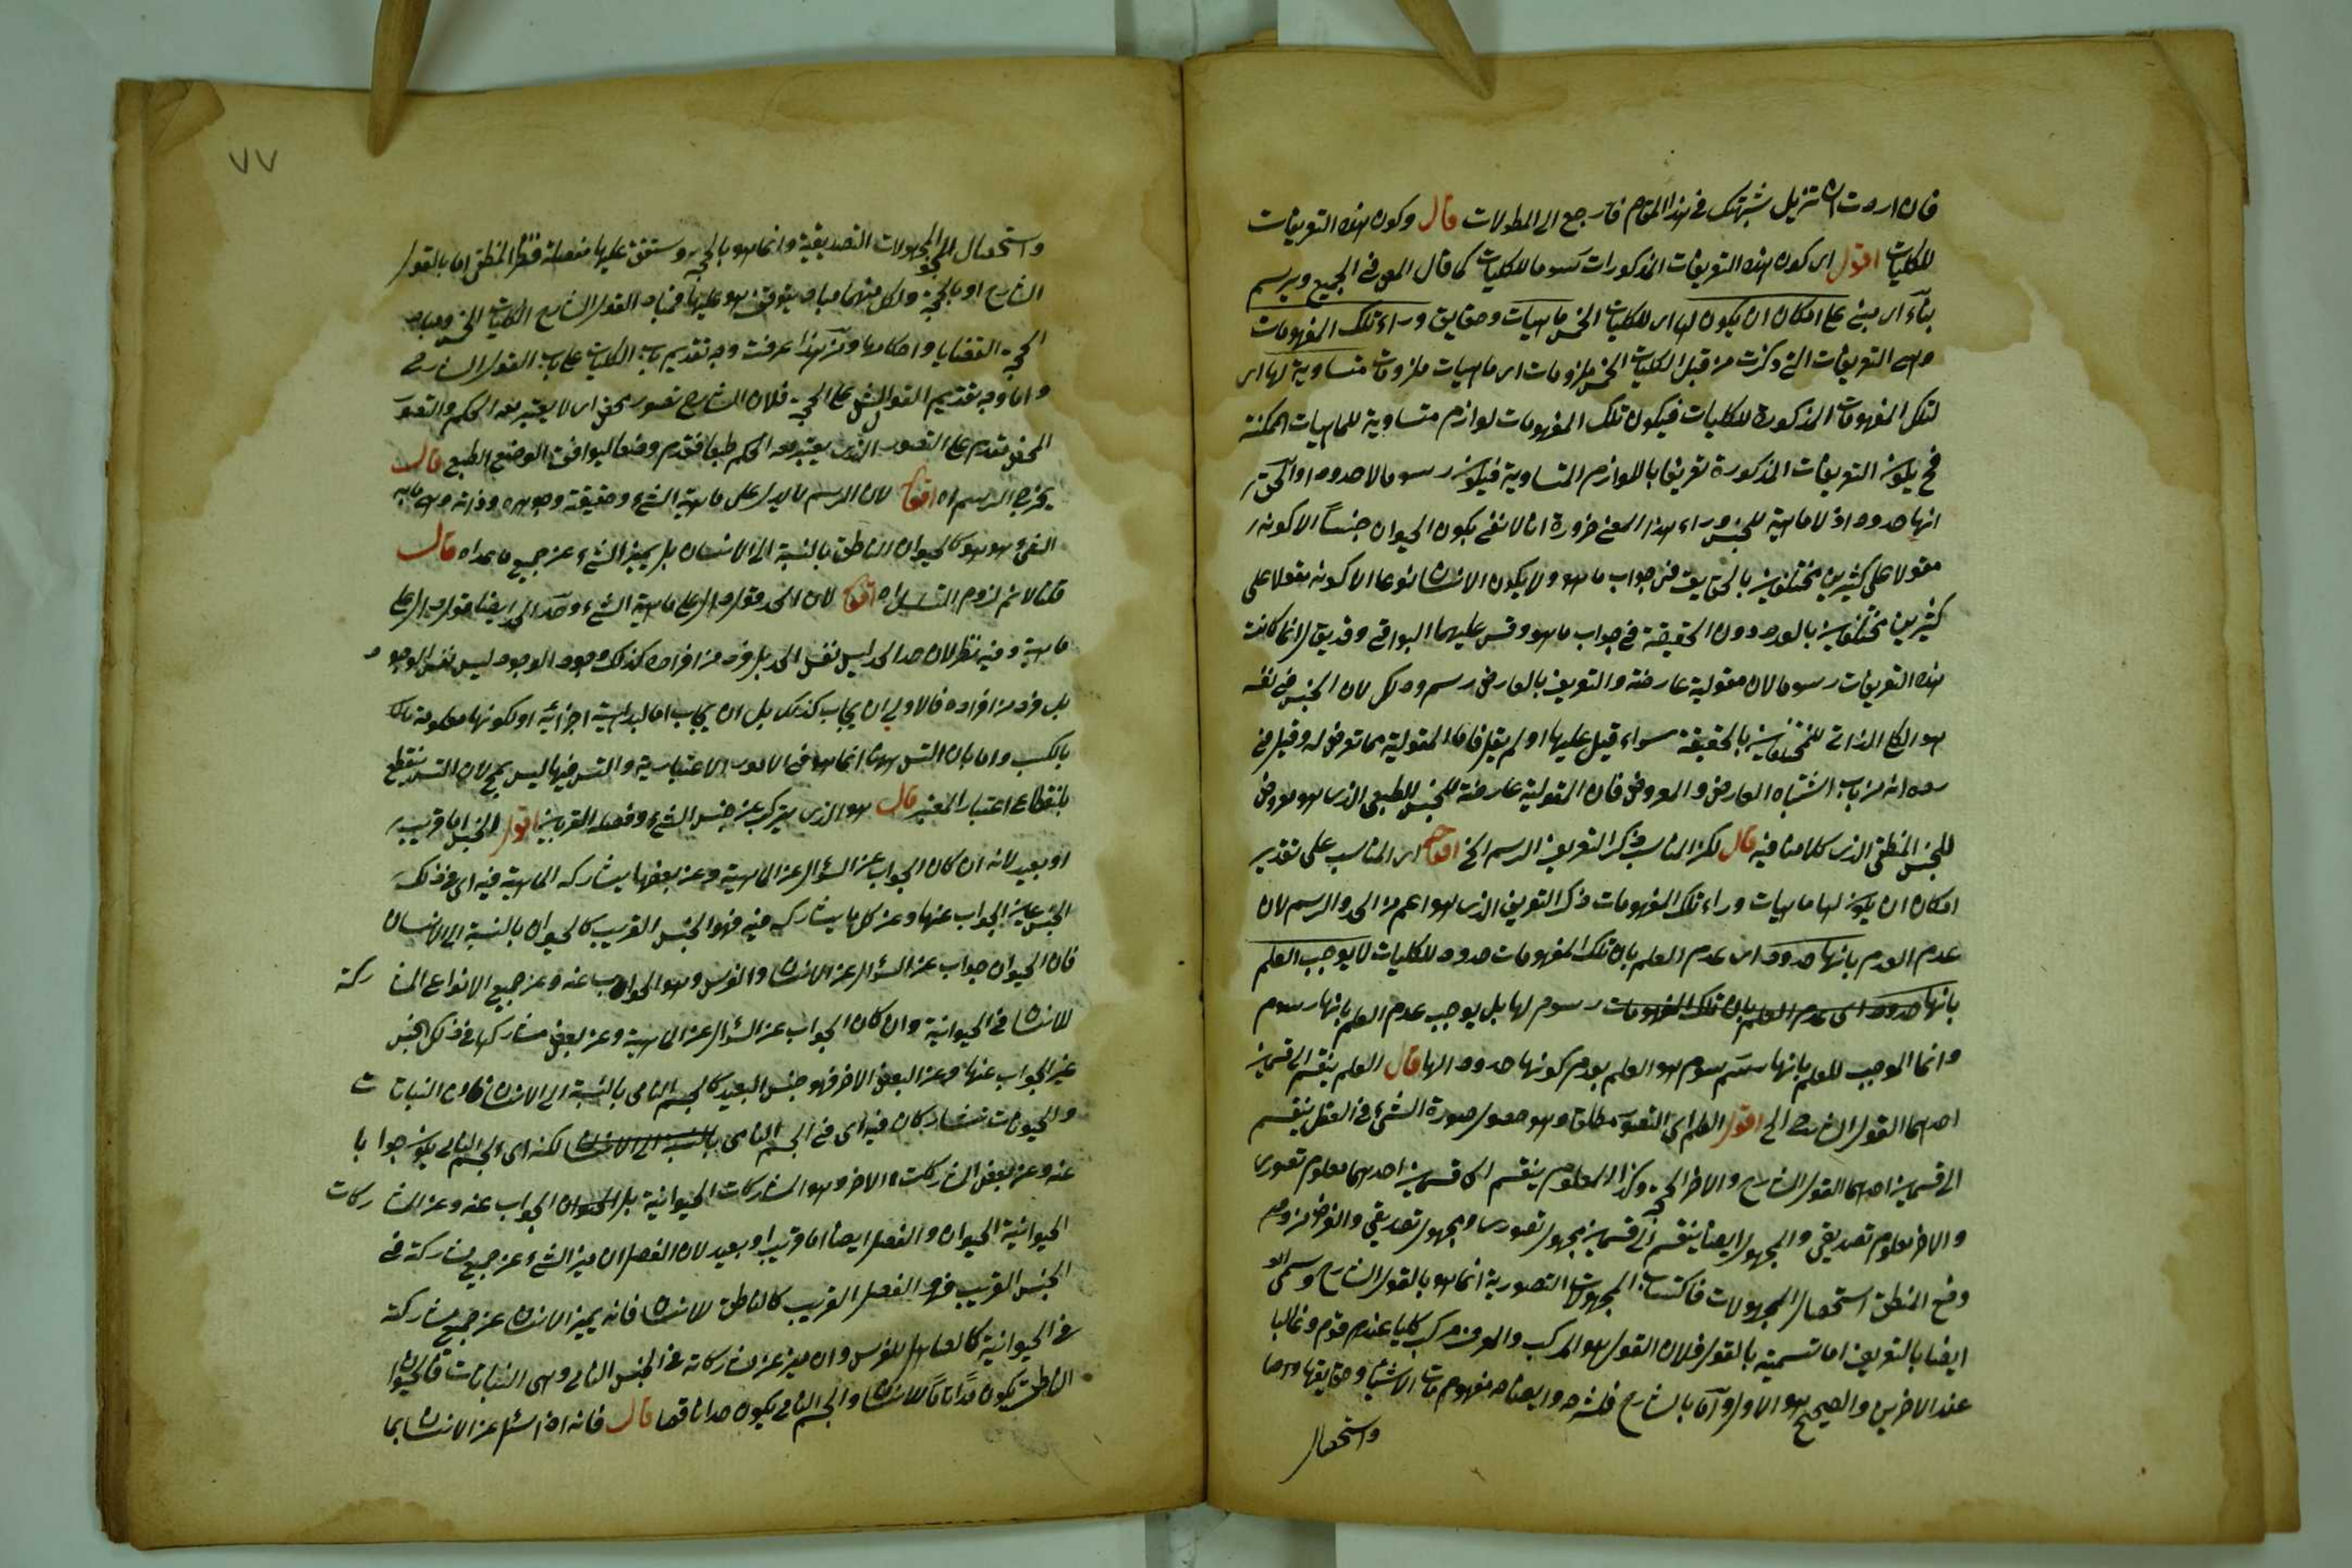 فان اردت ان تزيل شبهتك في هذا المقام فارجع الى المطولات قال وكون هذه التعريفات
للكليات اقول اى كون هذه التعريفات المذكورات رسوما للكليات كما قال المص في الجميع ويرسم
بناء اى مبنى على امكان ان يكون لها اى للكليات الخمس ماهيات وحقايق وراء تلك المفهومات
وهى التعريفات التى ذكرت من قبل الكليات الخمس ملزومات اى ماهيات ملزومات متساوية لها اى
لتلك المفهومات المذكورة للكليات فيكون تلك المفهومات لوازم متساوية للماهيات الممكنة
فح يكون التعريفات المذكورة تعريفا باللوازم المتساوية فيكون رسوما لا حدودا والحق
انها حدود اذ لا ماهية للجنس وراء هذا المعنى ضرورة انا لا نعنى بكون الحيوان جنسا الا كونه
مقولا على كثيرين مختلفين بالحقايق فى جواب ما هو ولا يكون الانسان نوعا الا كونه مقولا على
كثيرين مختلفين بالعدد دون الحقيقة في جواب ما هو وقس عليهما البواقى وقد يقال انما كانت
هذه التعريفات رسوما لان مقولية عارضة والتعريف بالعارض رسم وذلك لان الجنس في نفسه
هو الكلى الذاتى للمختلفين بالحقيقة سواء قيل عليها او لم يقل فاما المقولية مما تعرض له وقيل في
رده انه من باب اشتباه العارض والمعروض فان المقولية عارضة للجنس الطبيعى الذى هو معروض
للجنس المنطقى الذى كلامنا فيه قال لكن المناسب ذكر التعريف الرسم الخ اقول اى المناسب على تقدير
امكان ان يكون لها ماهيات وراء تلك المفهومات ذكر التعريف الذى هو اعم من الحد والرسم لان
عدم العلم بانها حدود اى عدم العلم بان تلك المفهومات حدود للكليات لا يوجب العلم
بانها حدود اى عدم العلم بان تلك المفهومات رسوم لها بل يوجب عدم العلم بانها رسوم
وانما الموجب للعلم بانها رسوم هو العلم بعدم كونها حدودا لها قال العلم ينقسم الى قسمين
احدهما القول الشارح الخ اقول العلم اى التصور مطلقا وهو حصول صورة الشئ في العقل ينقسم
الى قسمين احدهما القول الشارح والاخر الحجة وكذا المعلوم ينقسم الى قسمين احدهما معلوم تصورى
والاخر معلوم تصديقي والمجهول ايضا ينقسم الى قسمين مجهول تصورى ومجهول تصديقي والغرض من
وضع المنطق استحصال المجهولات فاكتساب المجهولات التصورية انما هو بالقول الشارح وسمى
ايضا بالتعريف اما تسمية بالقول فلان القول هو المركب والمعرف مركب كليا عند قوم وغالبا
عند الاخرين والصحيح هو الاول واما بالشارح فلشرحه وايضاحه مفهومات الاشياء وحقايقها
واستحصال
٧٧
واستحصال المجهولات التصديقية وانما هو بالحجة وستقف عليها مفصلة فنظر المنطقى اما بالقول
الشارح او بالحجة ولكل منهما مباد يتوقف هو عليها فمباد القول الشارح الكليات الخمس ومباد
الحجة القضايا واحكامها ومن هذا عرفت وجه تقديم باب الكليات على باب القول الشارح
واما وجه تقديم القول الش على الحجة فلان الشارح تصور محض اى لا يعتبر معه الحكم والتصور
المحض مقدم على التصور الذى يعتبر معه الحكم طبعا فقدم وضعا ليوافق الوضع الطبع قال
يخرج الرسم اه اقول لان الرسم لا يدل على ماهية الشئ وحقيقته وجوهره وذاته وهى ما به
الشئ هو هو كالحيوان الناطق بالنسبة الى الانسان بل يميز الشئ عن جميع ما عداه قال
قلنا لانم لزوم التسلسل اه اقول لان الحد قول دال على ماهية الشئ وحد الحد ايضا قول دال على
ماهية وفيه نظر لان حد الحد ليس نفس الحد بل فرد من افراده كذلك وجود الوجود ليس نفس الوجود
بل فرد من افراده فالاولى ان يجاب كذلك بل ان يجاب اما لبداهية اجزائه او لكونها معلومة
بالكسب واما بان التس ههنا انما هو فى الامور الاعتبارية والتس فيها ليس بمح لان التس ينقطع
بانقطاع اعتبار المعتبر قال هو الذى يتركب عن جنس الشئ وفصله القريبين اقول الجنس اما قريب
او بعيد لانه ان كان الجواب عن السؤال عن الماهية وعن بعض ما يشاركه الماهية فيه اى فى ذلك
الجنس عين الجواب عنها وعن كل ما يشاركه فيه فهو الجنس القريب كالحيوان بالنسبة الى الانسان
فان الحيوان جواب عن السؤال عن الانسان والفرس وهو الجواب عنه وعن جميع الانواع المشاركة
للانسان فى الحيوانية وان كان الجواب عن السؤال عن الماهية وعن بعض مشاركها فى ذلك الجنس
غير الجواب عنها وعن البعض الاخر فهو جنس البعيد كالجسم النامى بالنسبة الى الانسان فان النباتات
والحيوانات تشاركان فيه اى فى الجسم النامى بالنسبة الى الانسان لكنه اى الجسم النامى يكون جوابا
عنه وعن بعض المشاركات الاخر وهو المشاركات الحيوانية بل الحيوان الجواب عنه وعن المشاركات
الحيوانية الحيوان والفصل ايضا اما قريب او بعيد لان الفصل ان ميز الشئ عن جميع مشاركة فى
الجنس القريب فهو الفصل القريب كالناطق للانسان فانه يميز الانسان عن جميع مشاركة
فى الحيوانية كالصاهل للفرس وان ميز عن مشاركاته فى الجنس النامى وهى النباتات فالحيوان
الناطق يكون حدا تاما للانسان والجسم النامى يكون حدا ناقصا قال فانه اذا سئل عن الانسان بما